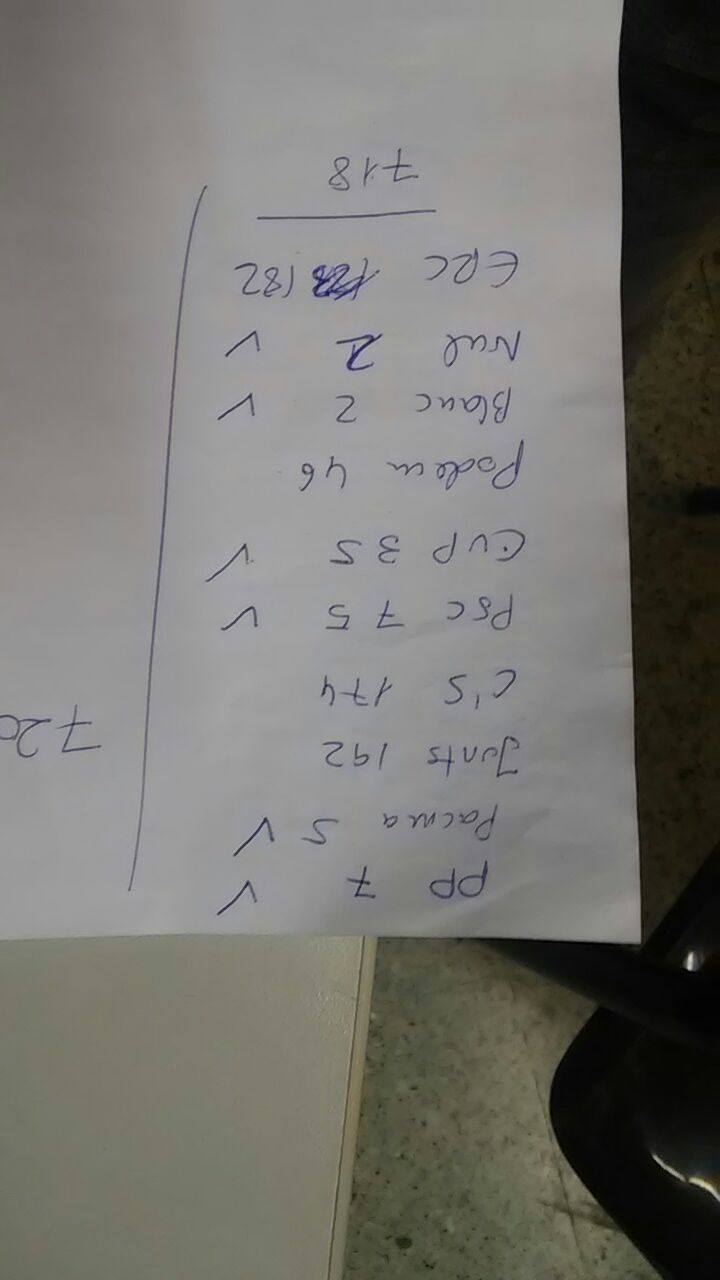 PP 7 V
Pacma 5 V
Junts 192
C's 174
Psc 75 V
CUP 35 V
Podem 46
Blanc 2 V
Nul 2 V
ERC 182
718
720